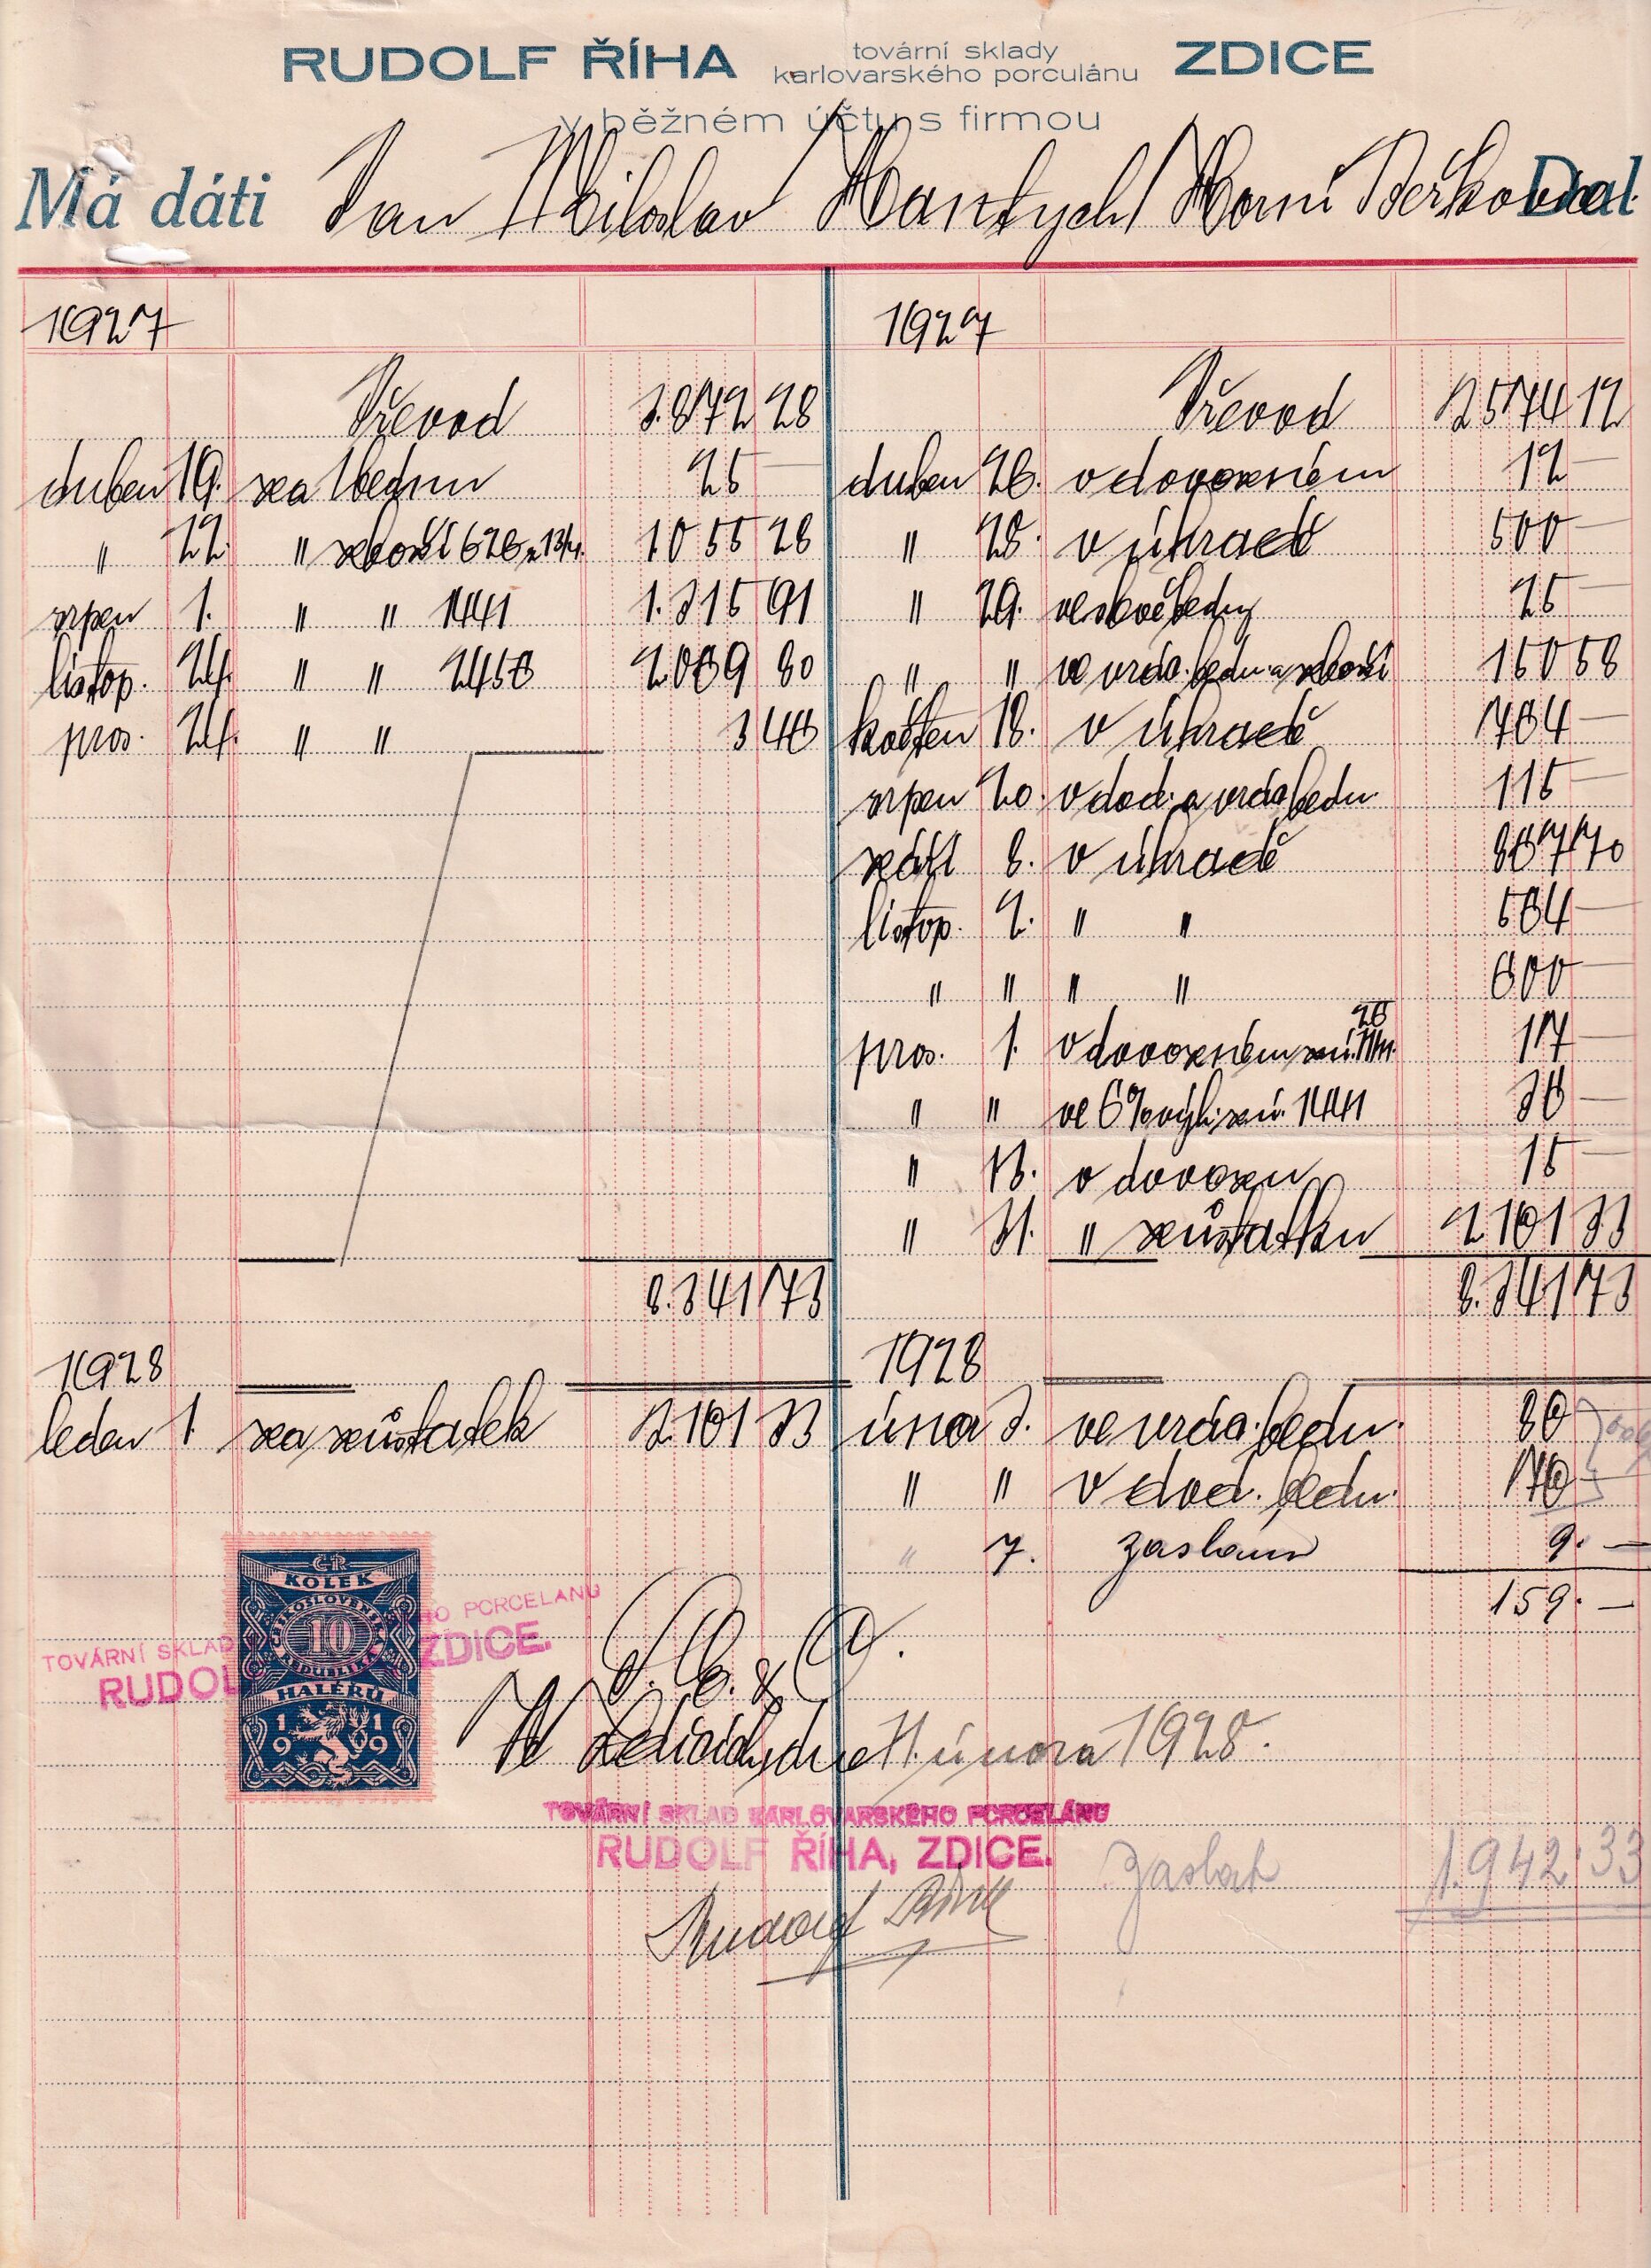 RUDOLF ŘÍHA tovární sklady karlovarského porculánu ZDICE
v běžném účtu s firmou
Má dáti Jan Miloslav Hantych / Horní Beřkovice. Dal
1927 1927
Převod 3.872 28 Převod 2574 12
duben 19. za 1 bednu 25 — duben 26. v dovozném 12 —
" 22. " zboží 626 z 13/4. 1055 28 " 28. v úhradě 500 —
srpen 1. " " 1441 1.315 91 " 29. ve slevě bedny 25 —
listop. 24. " " 2456 2069 80 " " ve vrác. bedn. a zboží 150 58
pros. 24. " " 3 46 květen 18. v úhradě 764 —
srpen 20. v dod. a vrác. bedn. 115 —
září 8. v úhradě 867 70
listop. 2. " " 564 —
" " " " 600 —
pros. 1. v dovozném 17 —
" " ve 6% 1441 36 —
" 13. v dovozu 15 —
" 31. " zůstatku 2101 33
8.341 73 8.341 73
1928 1928
leden 1. za zůstatek 2101 33 února 3. ve vrác. bedn. 80
" " v dod. bedn. 70 —
" 7. zaslám 9. —
159. —
ČR
KOLEK
ČESKOSLOVENSKÁ
10
REPUBLIKA
HALÉŘŮ
1919
TOVÁRNÍ SKLAD HO PORCELANU
RUDOL ZDICE.
S. E. & O.
Ve Zdicích, dne 1. února 1928.
TOVÁRNÍ SKLAD KARLOVARSKÉHO PORCELÁNU
RUDOLF ŘÍHA, ZDICE.
zaslat 1.942.33
Rudolf Říha